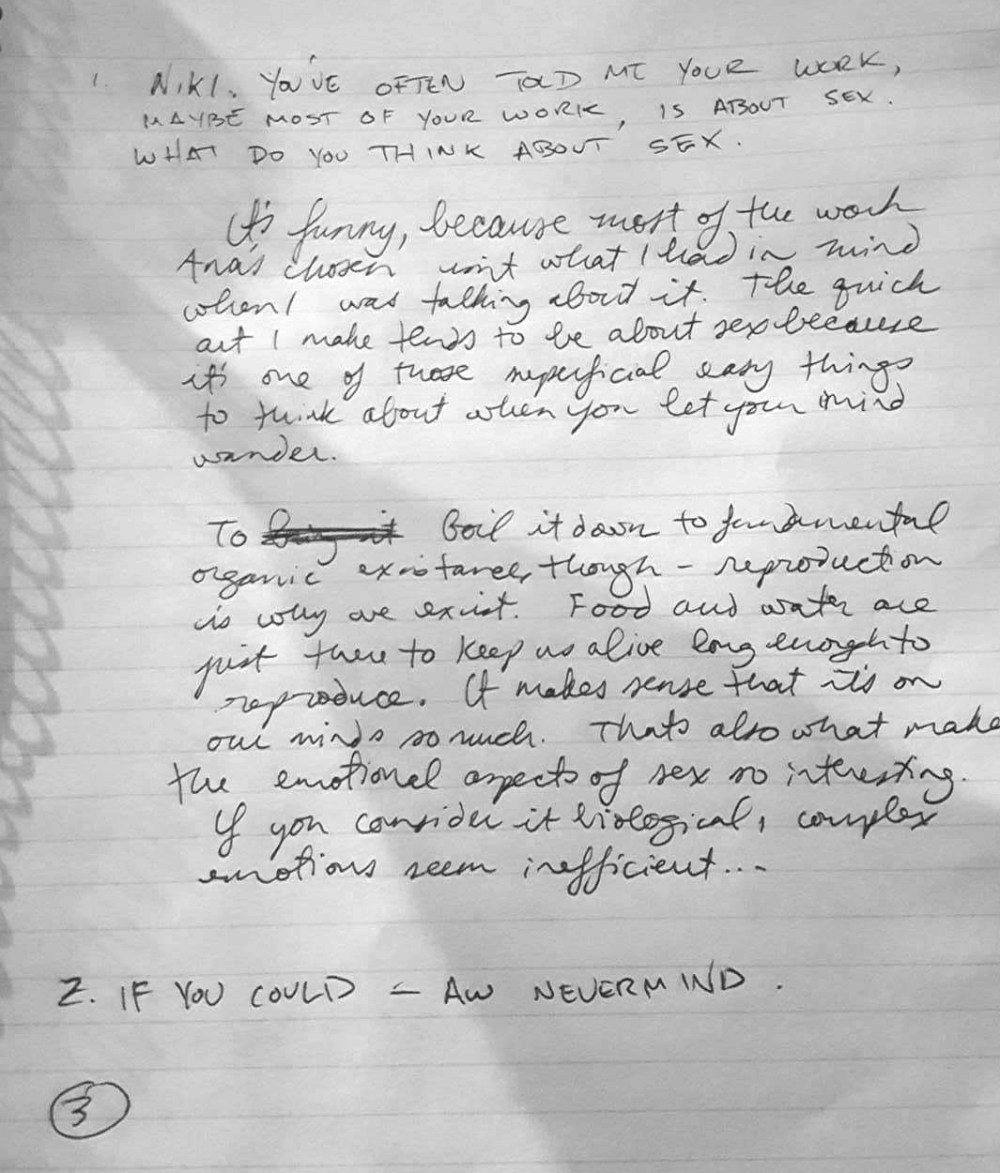 1. NIKI. YOU'VE OFTEN TOLD ME YOUR WORK,
MAYBE MOST OF YOUR WORK, IS ABOUT SEX.
WHAT DO YOU THINK ABOUT SEX.
It's funny, because most of the work
Ana's chosen isn't what I had in mind
when I was talking about it. The quick
art I make tends to be about sex because
it's one of those superficial easy things
to think about when you let your mind
wander.
To bring it Boil it down to fundamental
organic existance, though - reproduction
is why we exist. Food and water are
just there to keep us alive long enough to
reproduce. It makes sense that it's on
our minds so much. Thats also what make
the emotional aspects of sex so interesting.
If you consider it biological, complex
emotions seem inefficient...
2. IF YOU COULD - AW NEVERMIND.
3